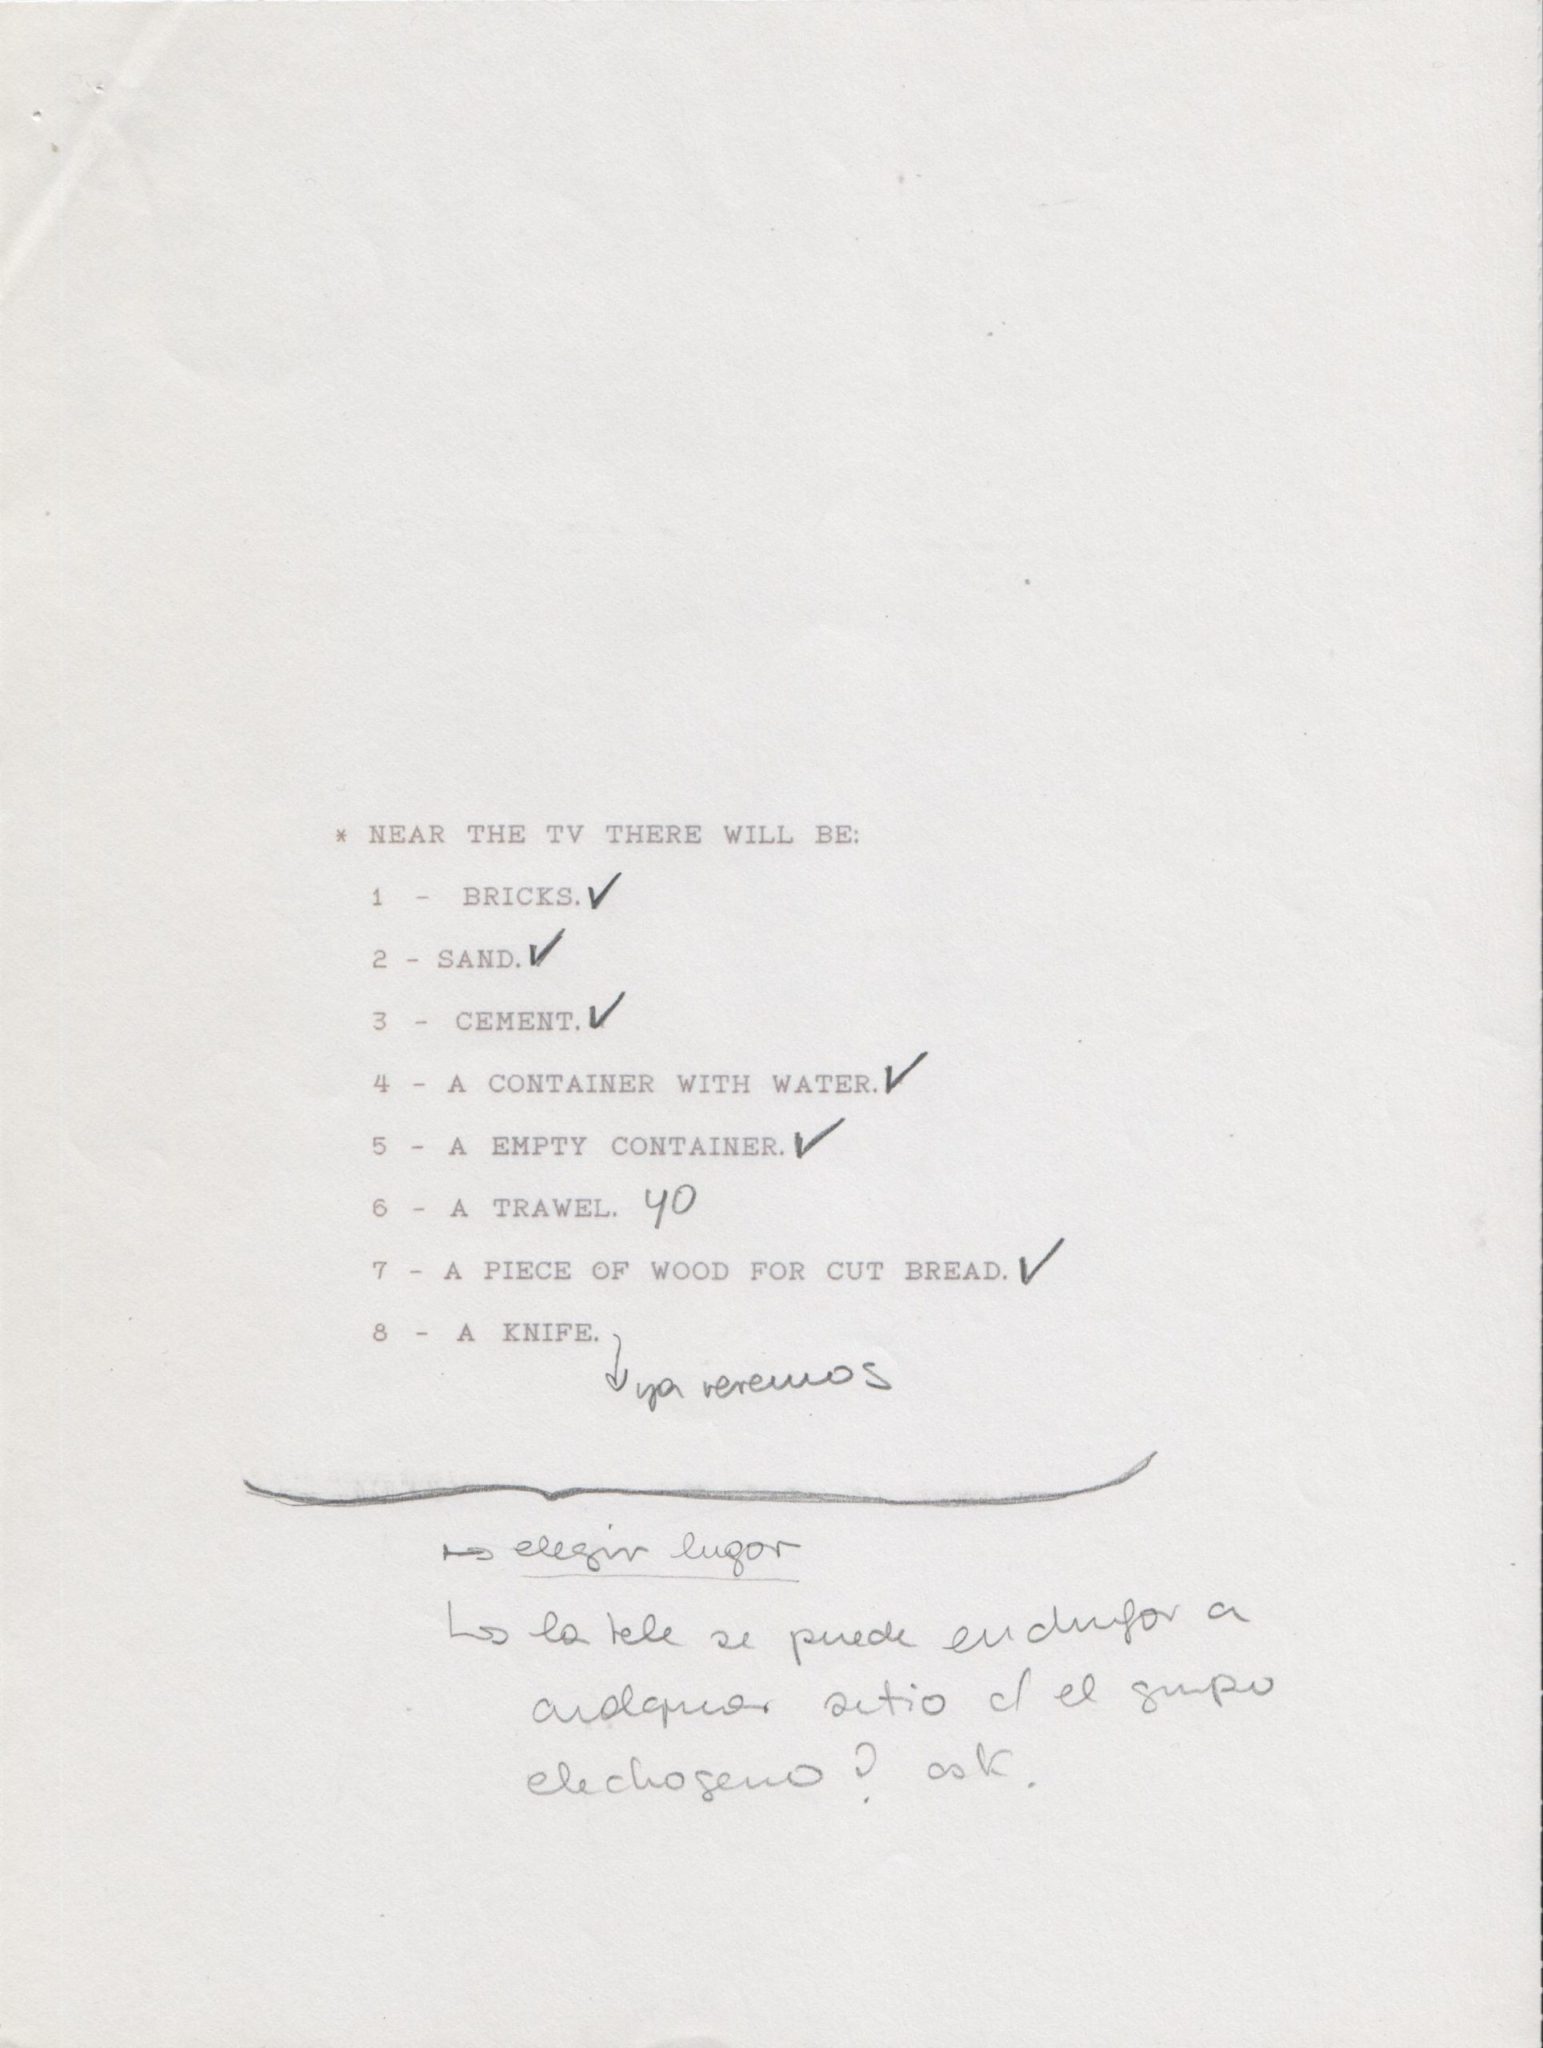 * NEAR THE TV THERE WILL BE:
1 - BRICKS. ✓
2 - SAND. ✓
3 - CEMENT. ✓
4 - A CONTAINER WITH WATER. ✓
5 - A EMPTY CONTAINER. ✓
6 - A TRAWEL. YO
7 - A PIECE OF WOOD FOR CUT BREAD. ✓
8 - A KNIFE.
↓ ya veremos
→ elegir lugar
↳ la tele se puede enchufar a
cualquier sitio c/ el grupo
electrogeno? ask.